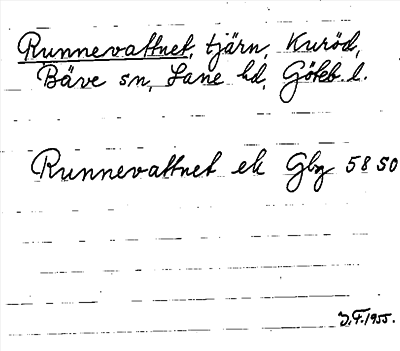 Runnevattnet, tjärn, Kuröd,
Bäve sn, Lane hd, Göteb. l.
Runnevattnet ek Gbg 5850
J.F. 1955.